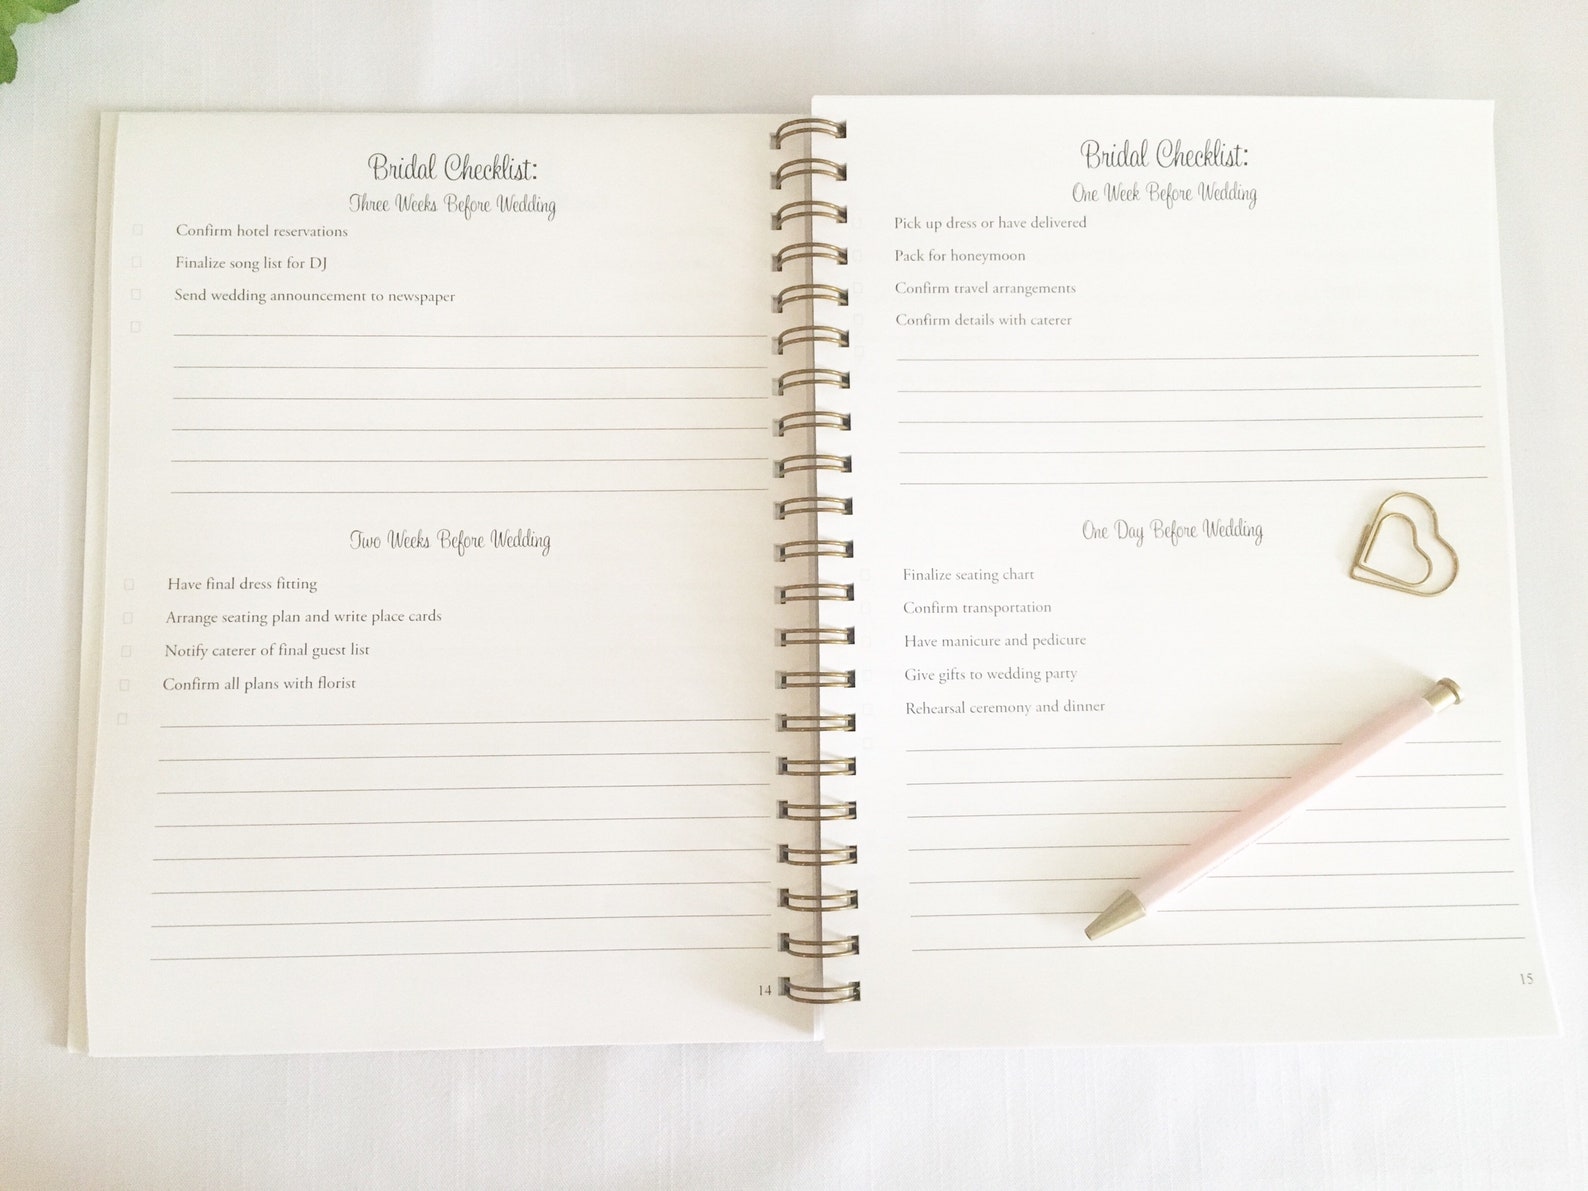 Bridal Checklist:
Three Weeks Before Wedding
Confirm hotel reservations
Finalize song list for DJ
Send wedding announcement to newspaper
Two Weeks Before Wedding
Have final dress fitting
Arrange seating plan and write place cards
Notify caterer of final guest list
Confirm all plans with florist
14
Bridal Checklist:
One Week Before Wedding
Pick up dress or have delivered
Pack for honeymoon
Confirm travel arrangements
Confirm details with caterer
One Day Before Wedding
Finalize seating chart
Confirm transportation
Have manicure and pedicure
Give gifts to wedding party
Rehearsal ceremony and dinner
15